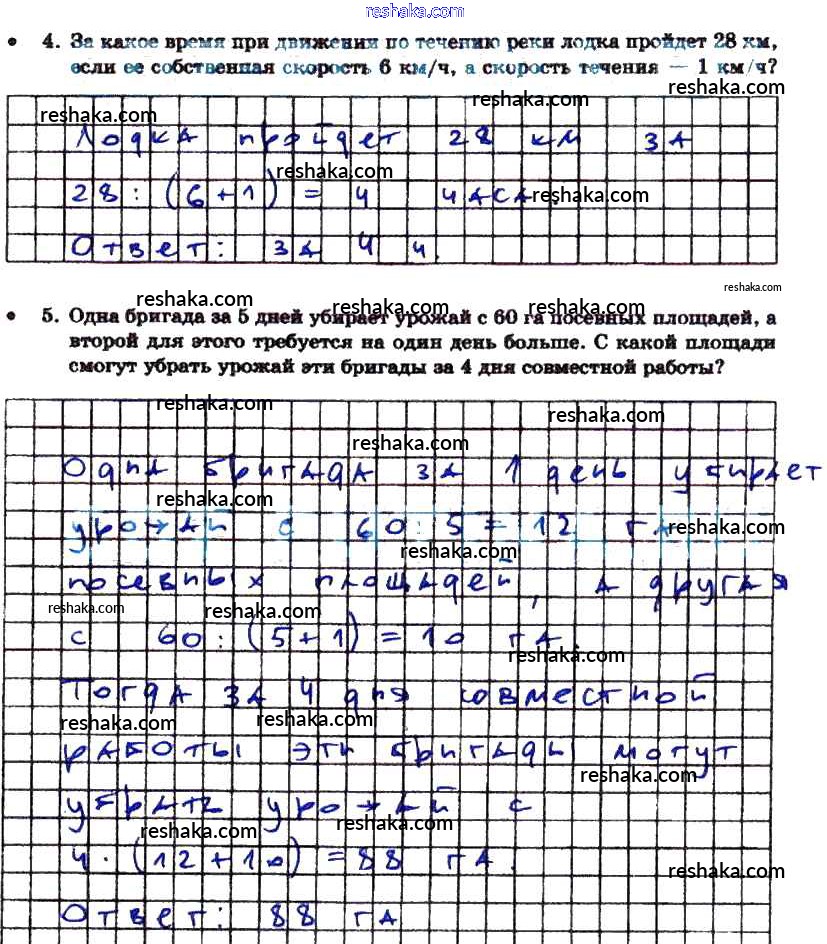 reshaka.com
• 4. За какое время при движении по течению реки лодка пройдет 28 км,
если ее собственная скорость 6 км/ч, а скорость течения — 1 км/ч?
reshaka.com
reshaka.com
reshaka.com
Лодка пройдет 28 км за
reshaka.com
28 : (6 + 1) = 4 часа
reshaka.com
Ответ: за 4 ч.
reshaka.com
reshaka.com
reshaka.com
• 5. Одна бригада за 5 дней убирает урожай с 60 га посевных площадей, а
второй для этого требуется на один день больше. С какой площади
смогут убрать урожай эти бригады за 4 дня совместной работы?
reshaka.com
reshaka.com
reshaka.com
Одна бригада за 1 день убирает
reshaka.com
урожай с 60 : 5 = 12 га
reshaka.com
reshaka.com
посевных площадей, а другая
reshaka.com
reshaka.com
с 60 : (5 + 1) = 10 га.
reshaka.com
Тогда за 4 дня совместной
reshaka.com
reshaka.com
работы эти бригады могут
reshaka.com
убрать урожай с
reshaka.com
reshaka.com
4 · (12 + 10) = 88 га.
reshaka.com
Ответ: 88 га